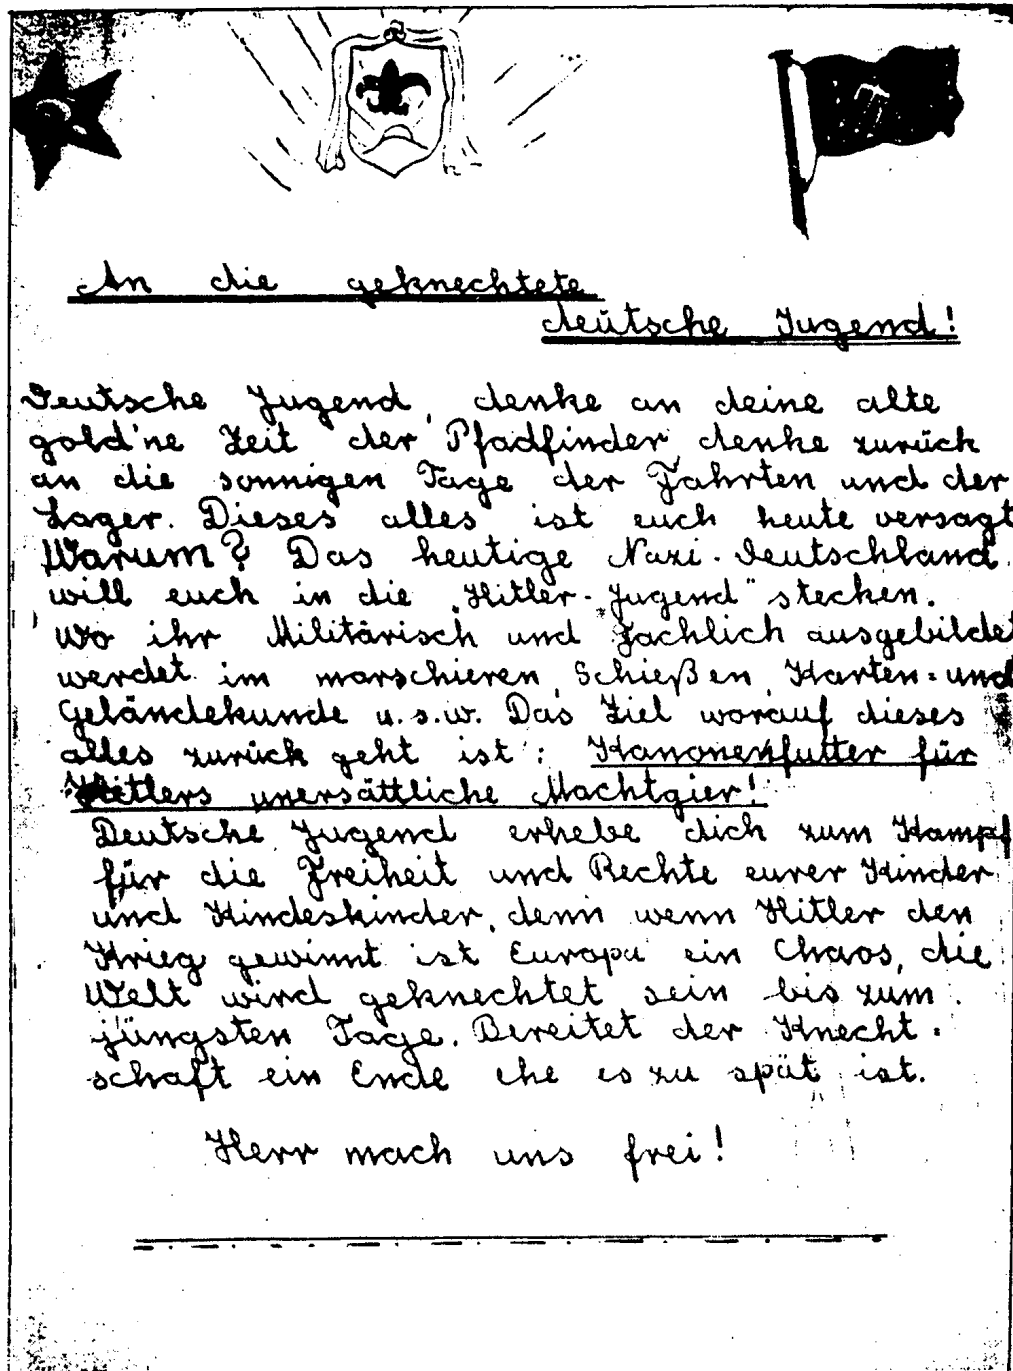 An die geknechtete
deutsche Jugend!
Deutsche Jugend, denke an deine alte
gold'ne Zeit der Pfadfinder, denke zurück
an die sonnigen Tage der Fahrten und der
Lager. Dieses alles ist euch heute versagt
Warum? Das heutige Nazi-Deutschland
will euch in die „Hitler-Jugend" stecken.
Wo ihr Militärisch und Fachlich ausgebildet
werdet im marschieren, Schießen, Karten= und
Geländekunde u.s.w. Das Ziel worauf dieses
alles zurück geht ist: Kanonenfutter für
Hitlers unersättliche Machtgier!
Deutsche Jugend erhebe dich zum Kampf
für die Freiheit und Rechte eurer Kinder
und Kindeskinder, denn wenn Hitler den
Krieg gewinnt ist Europa ein Chaos, die
Welt wird geknechtet sein bis zum
jüngsten Tage. Bereitet der Knecht=
schaft ein Ende ehe es zu spät ist.
Herr mach uns frei!